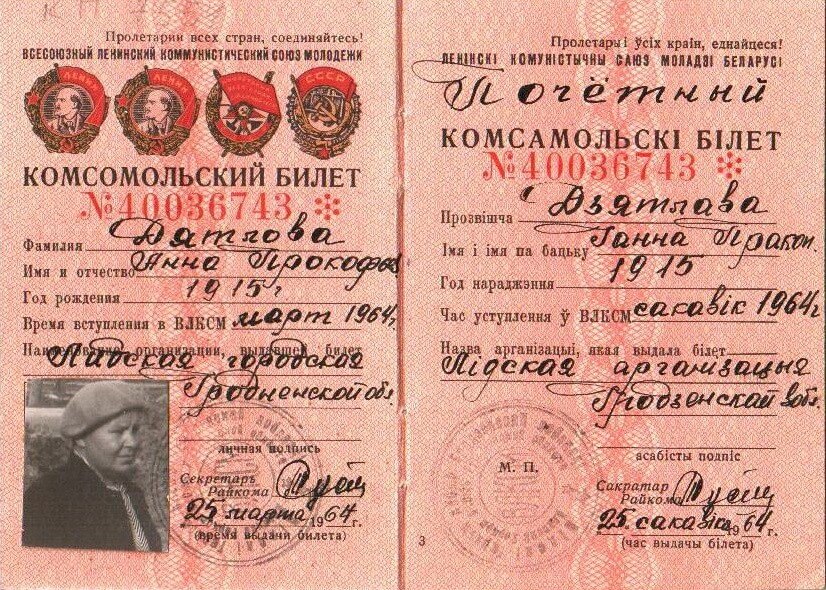 Пролетарии всех стран, соединяйтесь!
ВСЕСОЮЗНЫЙ ЛЕНИНСКИЙ КОММУНИСТИЧЕСКИЙ СОЮЗ МОЛОДЕЖИ
ЛЕНИН
ЛЕНИН
СССР
КОМСОМОЛЬСКИЙ БИЛЕТ
№40036743
Фамилия Дятлова
Имя и отчество Анна Прокофьев
Год рождения 1915 г
Время вступления в ВЛКСМ март 1964 г.
Наименование организации, выдавшей билет
Лидская городская
Гродненской обл.
личная подпись
Секретарь
Райкома
25 марта 1964 г.
(время выдачи билета)
Пролетары і ўсіх краін, еднайцеся!
ЛЕНІНСКІ КОМУНІСТЫЧНЫ САЮЗ МОЛАДЗІ БЕЛАРУСІ
Почётный
КОМСАМОЛЬСКІ БІЛЕТ
№40036743
Прозвішча Дзятлава
Імя і імя па бацьку Ганна Пракоп.
Год нараджэння 1915
Час уступлення ў ВЛКСМ сакавік 1964 г
Назва арганізацыі, якая выдала білет
Лідская арганізацыя
Гродзенскай вобл.
М. П.
асабісты подпіс
Сакратар
Райкома
25 сакавіка 1964 г.
(час выдачы білета)
3